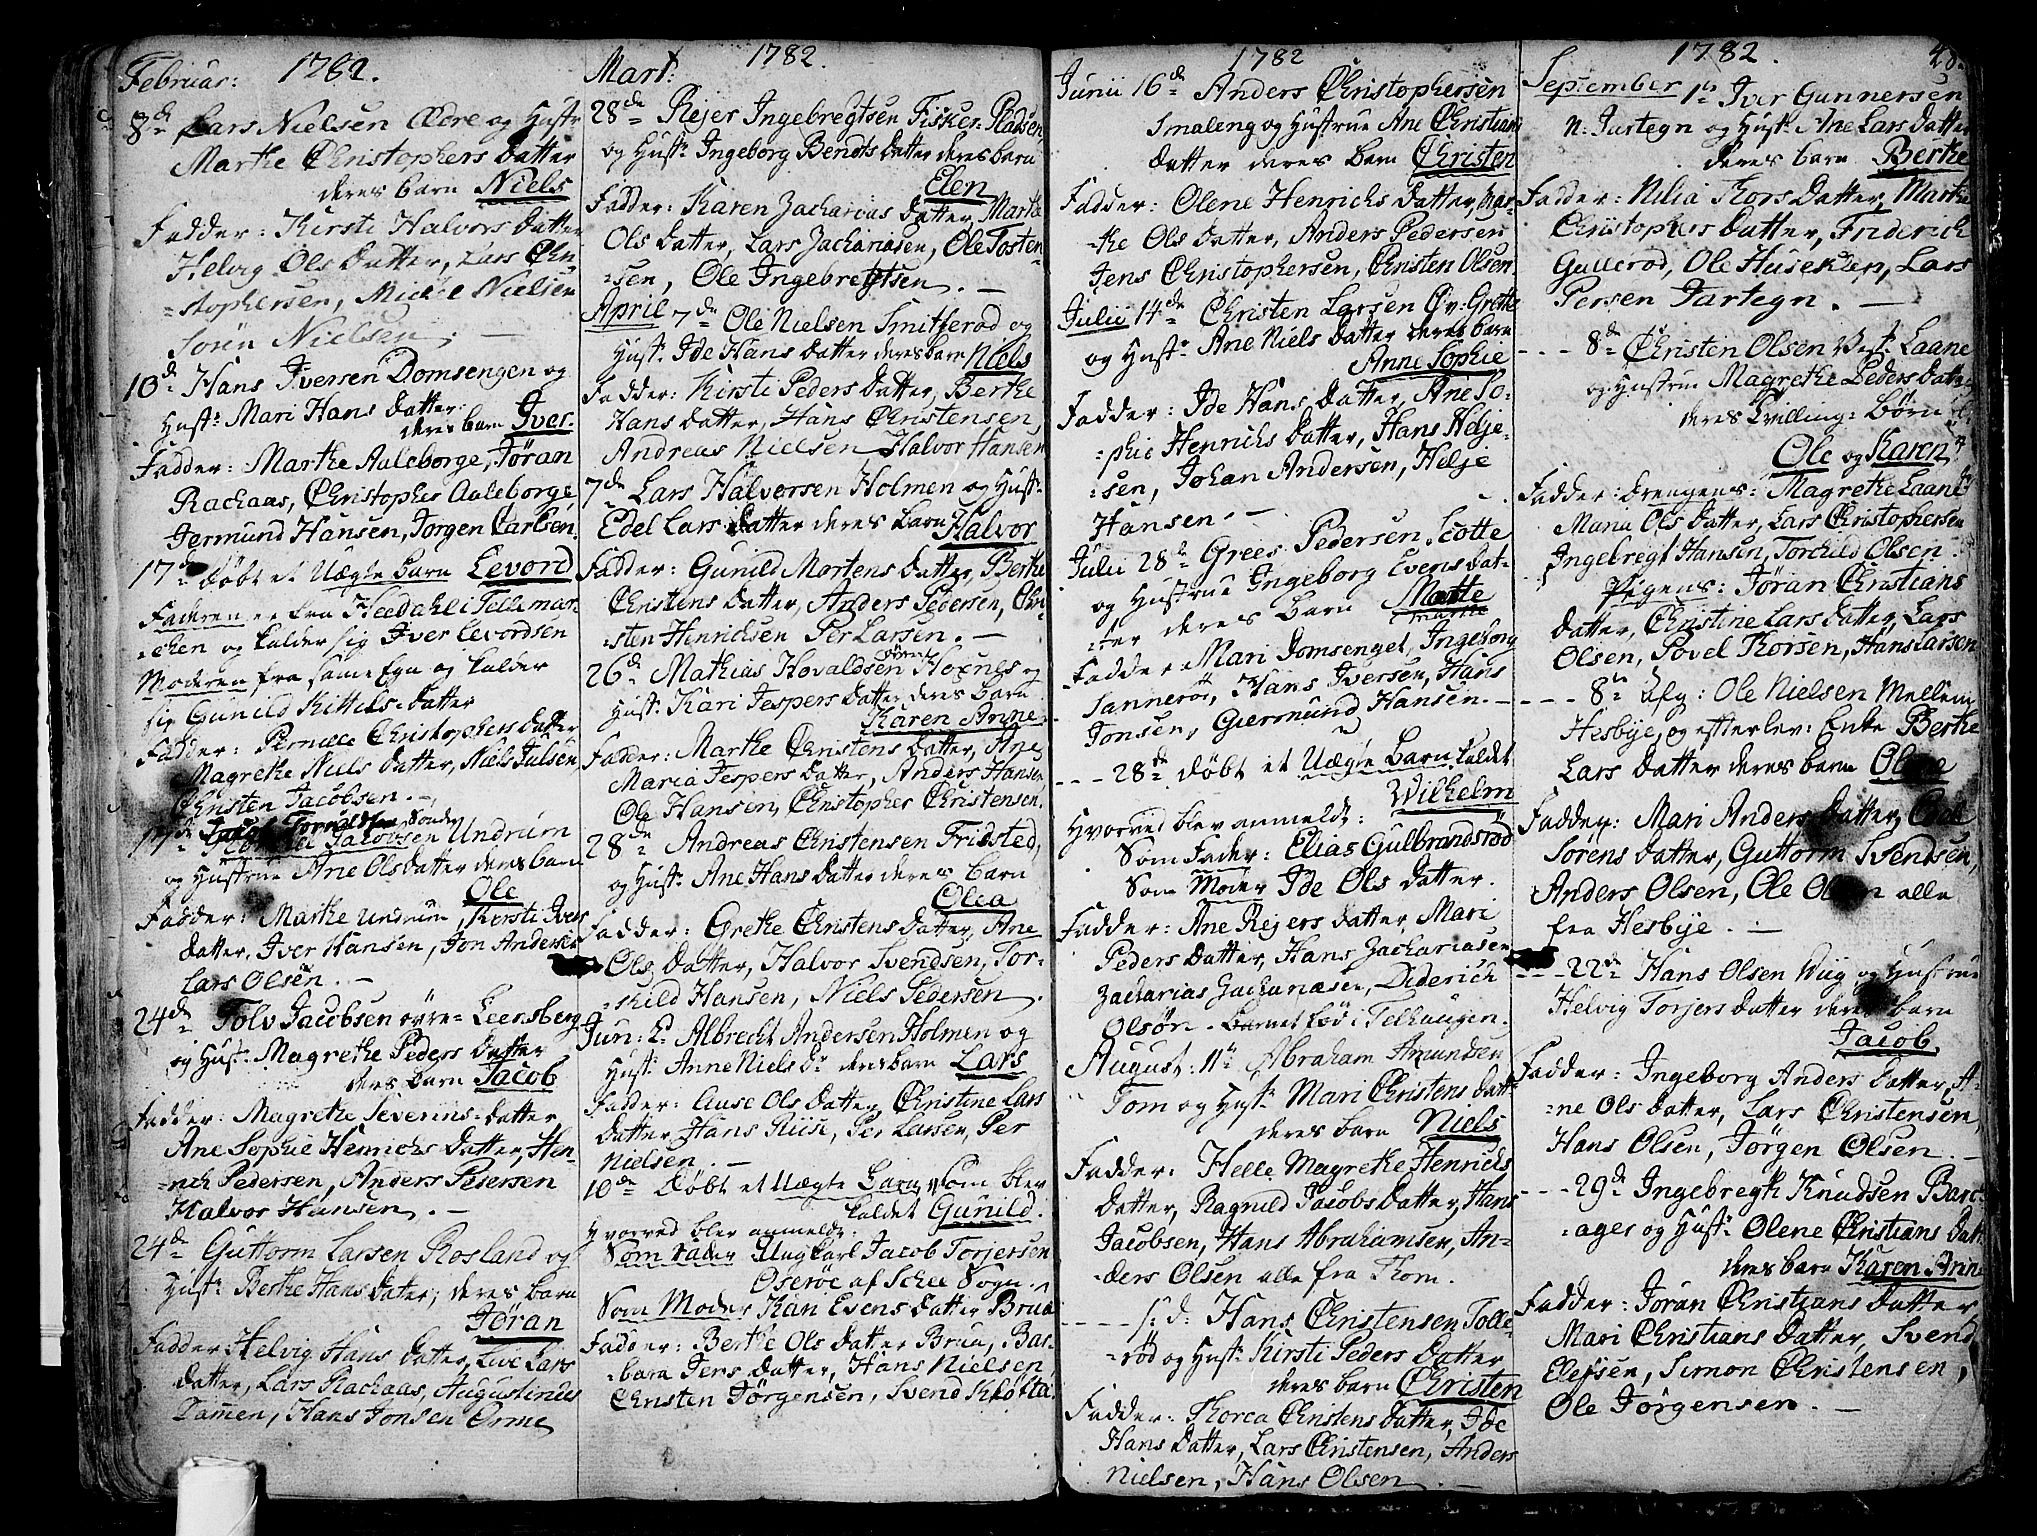 Februar: 1782.
8de Lars Nielsen Ødre og Hustr
Marthe Christophers Datter
deres barn Niels
Fadder: Kirsti Halvors Datter
Helvig Ols Datter, Lars Chri
=stophersen, Michel Nielsen
Sören Nielsen.
10de Hans Iversen Domsengen og
Hust: Mari Hans Datter
deres barn Iver.
Fadder: Marthe Aaleborge, Jöran
Rachaas, Christopher Aaleborge
Jermund Hansen, Jörgen Carlsen.
17de Döbt et Uægte barn Levord
Faderen er fra Hiedahl i Tellemar
=chen og kalder sig Iver Levordsen
Moderen fra samme Egn og kalder
sig Gunild Kittels=Datter
Fadder: Pernille Christophers Datter
Magrethe Niels Datter, Niels Julsen
Christen Jacobsen.
17de Jacobsen Undrum
og Hustrue Ane Olsdatter deres barn
Ole
Fadder: Marthe Undrum, Kirsti Ivers
datter, Iver Hansen, Jon Andersen
Lars Olsen.
24de Tolv Jacobsen övre=Leensberg
og Hust: Magrethe Peders Datter
deres barn Jacob
Fadder: Magrethe Severins=datter
Ane Sophie Henrichs Datter, Hen-
=rich Pedersen, Anders Pedersen
Halvor Hansen.
24de Guttorm Larsen Rosland og
Hust: Berthe Hans Datter; deres barn
Jöran
Fadder Helvig Hans Datter, Live Lars
datter, Lars Rachaas, Augustinus
Tamnen, Hans Jonsen Orme
Mart: 1782.
28de Rejer Ingebregtsen Fisker=Pladsen
og Hust: Ingeborg Bendts Datter deres barn
Elen
Fadder: Karen Zacharias Datter, Marthe
Ols Datter, Lars Zachariasen, Ole Tosten
=sen, Ole Ingebregtsen.
April 7de Ole Nielsen Smitferöd og
Hust: Ide Hans Datter deres barn Niels
Fadder: Kirsti Peders Datter, Berthe
Hans Datter, Hans Christensen
Andreas Nielsen Halvor Hansen
7de Lars Halvorsen Holmen og Hust:
Edel Lars Datter deres barn Halvor
Fadder: Gunild Mortens Datter, Berthe
Christens Datter, Anders Pedersen, Chri-
=sten Henrichsen Per Larsen.
26de Mathias Hovaldsen Hoxnes og
Hust: Kari Jespers Datter deres barn
Karen Anne
Fadder: Marthe Christens Datter, Ane
Maria Jespers Datter, Anders Hansen
Ole Hansen, Christopher Christensen.
28de Andreas Christensen Fridsted,
og Hust: Ane Hans Datter deres barn
Olea
Fadder: Grethe Christens Datter, Ane
Ols Datter, Halvor Svendsen, Tor-
=kild Hansen, Niels Pedersen.
Jun: 2d Albrecht Andersen Holmen og
Hust: Anne Niels Dr deres barn Lars
Fadder: Anse Ols Datter, Christine Lars
datter, Hans Riise, Per Larsen, Per
Nielsen.
10de Döbt et Uægte Barn som blev
kaldet Gunild.
Hvorved blev anmeldt:
Som Fader Ungkarl Jacob Torjersen
Oseröe af Schee Sogn.
Som Moder Kari Evens Datter Brua
Fadder: Berthe Ols Datter Brua, Bar-
=bara Jens Datter, Hans Nielsen
Christen Jörgensen, Svend Kløfta
1782
Junii 16de Anders Christophersen
Smaleng og Hustrue Ane Christians
Datter deres barn Christen
Fadder: Olene Henrichs Datter, Mar-
=the Ols Datter, Anders Pedersen
Jens Christophersen, Christen Olsen.
Julii 14de Christen Larsen Qv: Grethe
og Hust: Ane Niels Datter deres barn
Anne Sophie
Fadder: Ide Hans Datter, Ane So-
=phie Henrichs Datter, Hans Helje-
=sen, Johan Andersen, Helje
Hansen.
Julii 28de Grees Pedersen Scotte
og Hustrue Ingeborg Evens Dat-
=ter deres barn Marte
Marthe
Fadder Mari Domsenget, Ingeborg
Sannerö, Hans Iversen, Hans
Jonsen, Giermund Hansen.
---- 28de Döbt et Uægte Barn kaldet
Wilhelm
Hvorved blev anmeldt:
Som Fader: Elias Gulbrandsröd
Som Moder Ide Ols Datter.
Fadder: Ane Rejers Datter, Mari
Peders Datter, Hans Zachariasen
Zacharias Zachariasen, Diderich
Olsön. Barnet föd i Telhaugen.
August: 11te Abraham Amundsen
Tom og Hust: Mari Christens Datt-
deres barn Niels
Fadder: Helle Magrethe Henrichs
Datter, Ragnild Jacobs Datter, Hans
Jacobsen, Hans Abrahamsen, An-
=ders Olsen alle fra Thom.
---- s: d: Hans Christensen Tolle-
=röd og Hust: Kirsti Peders Datter
deres barn Christen
Fadder: Thorea Christens Datter, Ide
Hans Datter, Lars Christensen, Anders
Nielsen, Hans Olsen.
1782. 48.
September 1te Iver Gunnersen
N: Jartegn og Hust: Ane Lars Datter
deres barn Berthe
Fadder: Nilia Thors Datter, Marthe
Christophers Datter, Friderich
Gulleröd, Ole Huseklep, Lars
Persen Jartegn.
---- 8de Christen Olsen Vest: Laane
og Hustrue Magrethe Peders Datter
deres Tvilling: Börn
Ole og Karen
Fadder: Drengens: Magrethe Laane
Maria Ols Datter, Lars Christophersen
Ingebregt Hansen, Torchild Olsen.
Pigens: Jöran Christians
Datter, Christine Lars Datter, Lars
Olsen, Povel Thorsen, Hans Larsen
---- 8de afg: Ole Nielsen Mellem
Hesbye, og efterlev: Enke Berthe
Lars Datter deres barn Olene
Fadder: Mari Anders Datter,
Sörens Datter, Guttorm Svendsen,
Anders Olsen, Ole Olsen alle
fra Hesbye.
---- 22de Hans Olsen Wiig og Hustrue
Helvig Torjers Datter deres barn
Jacob.
Fadder: Ingeborg Anders Datter, A-
=ne Ols Datter, Lars Christensen,
Hans Olsen, Jörgen Olsen.
---- 29de Ingebregth Knudsen Barc-
=ager og Hust: Olene Christians Datt
deres barn Karen Ann
Fadder: Jöran Christians Datter
Mari Christians Datter, Svend
Elefsen, Simon Christensen,
Ole Jörgensen.